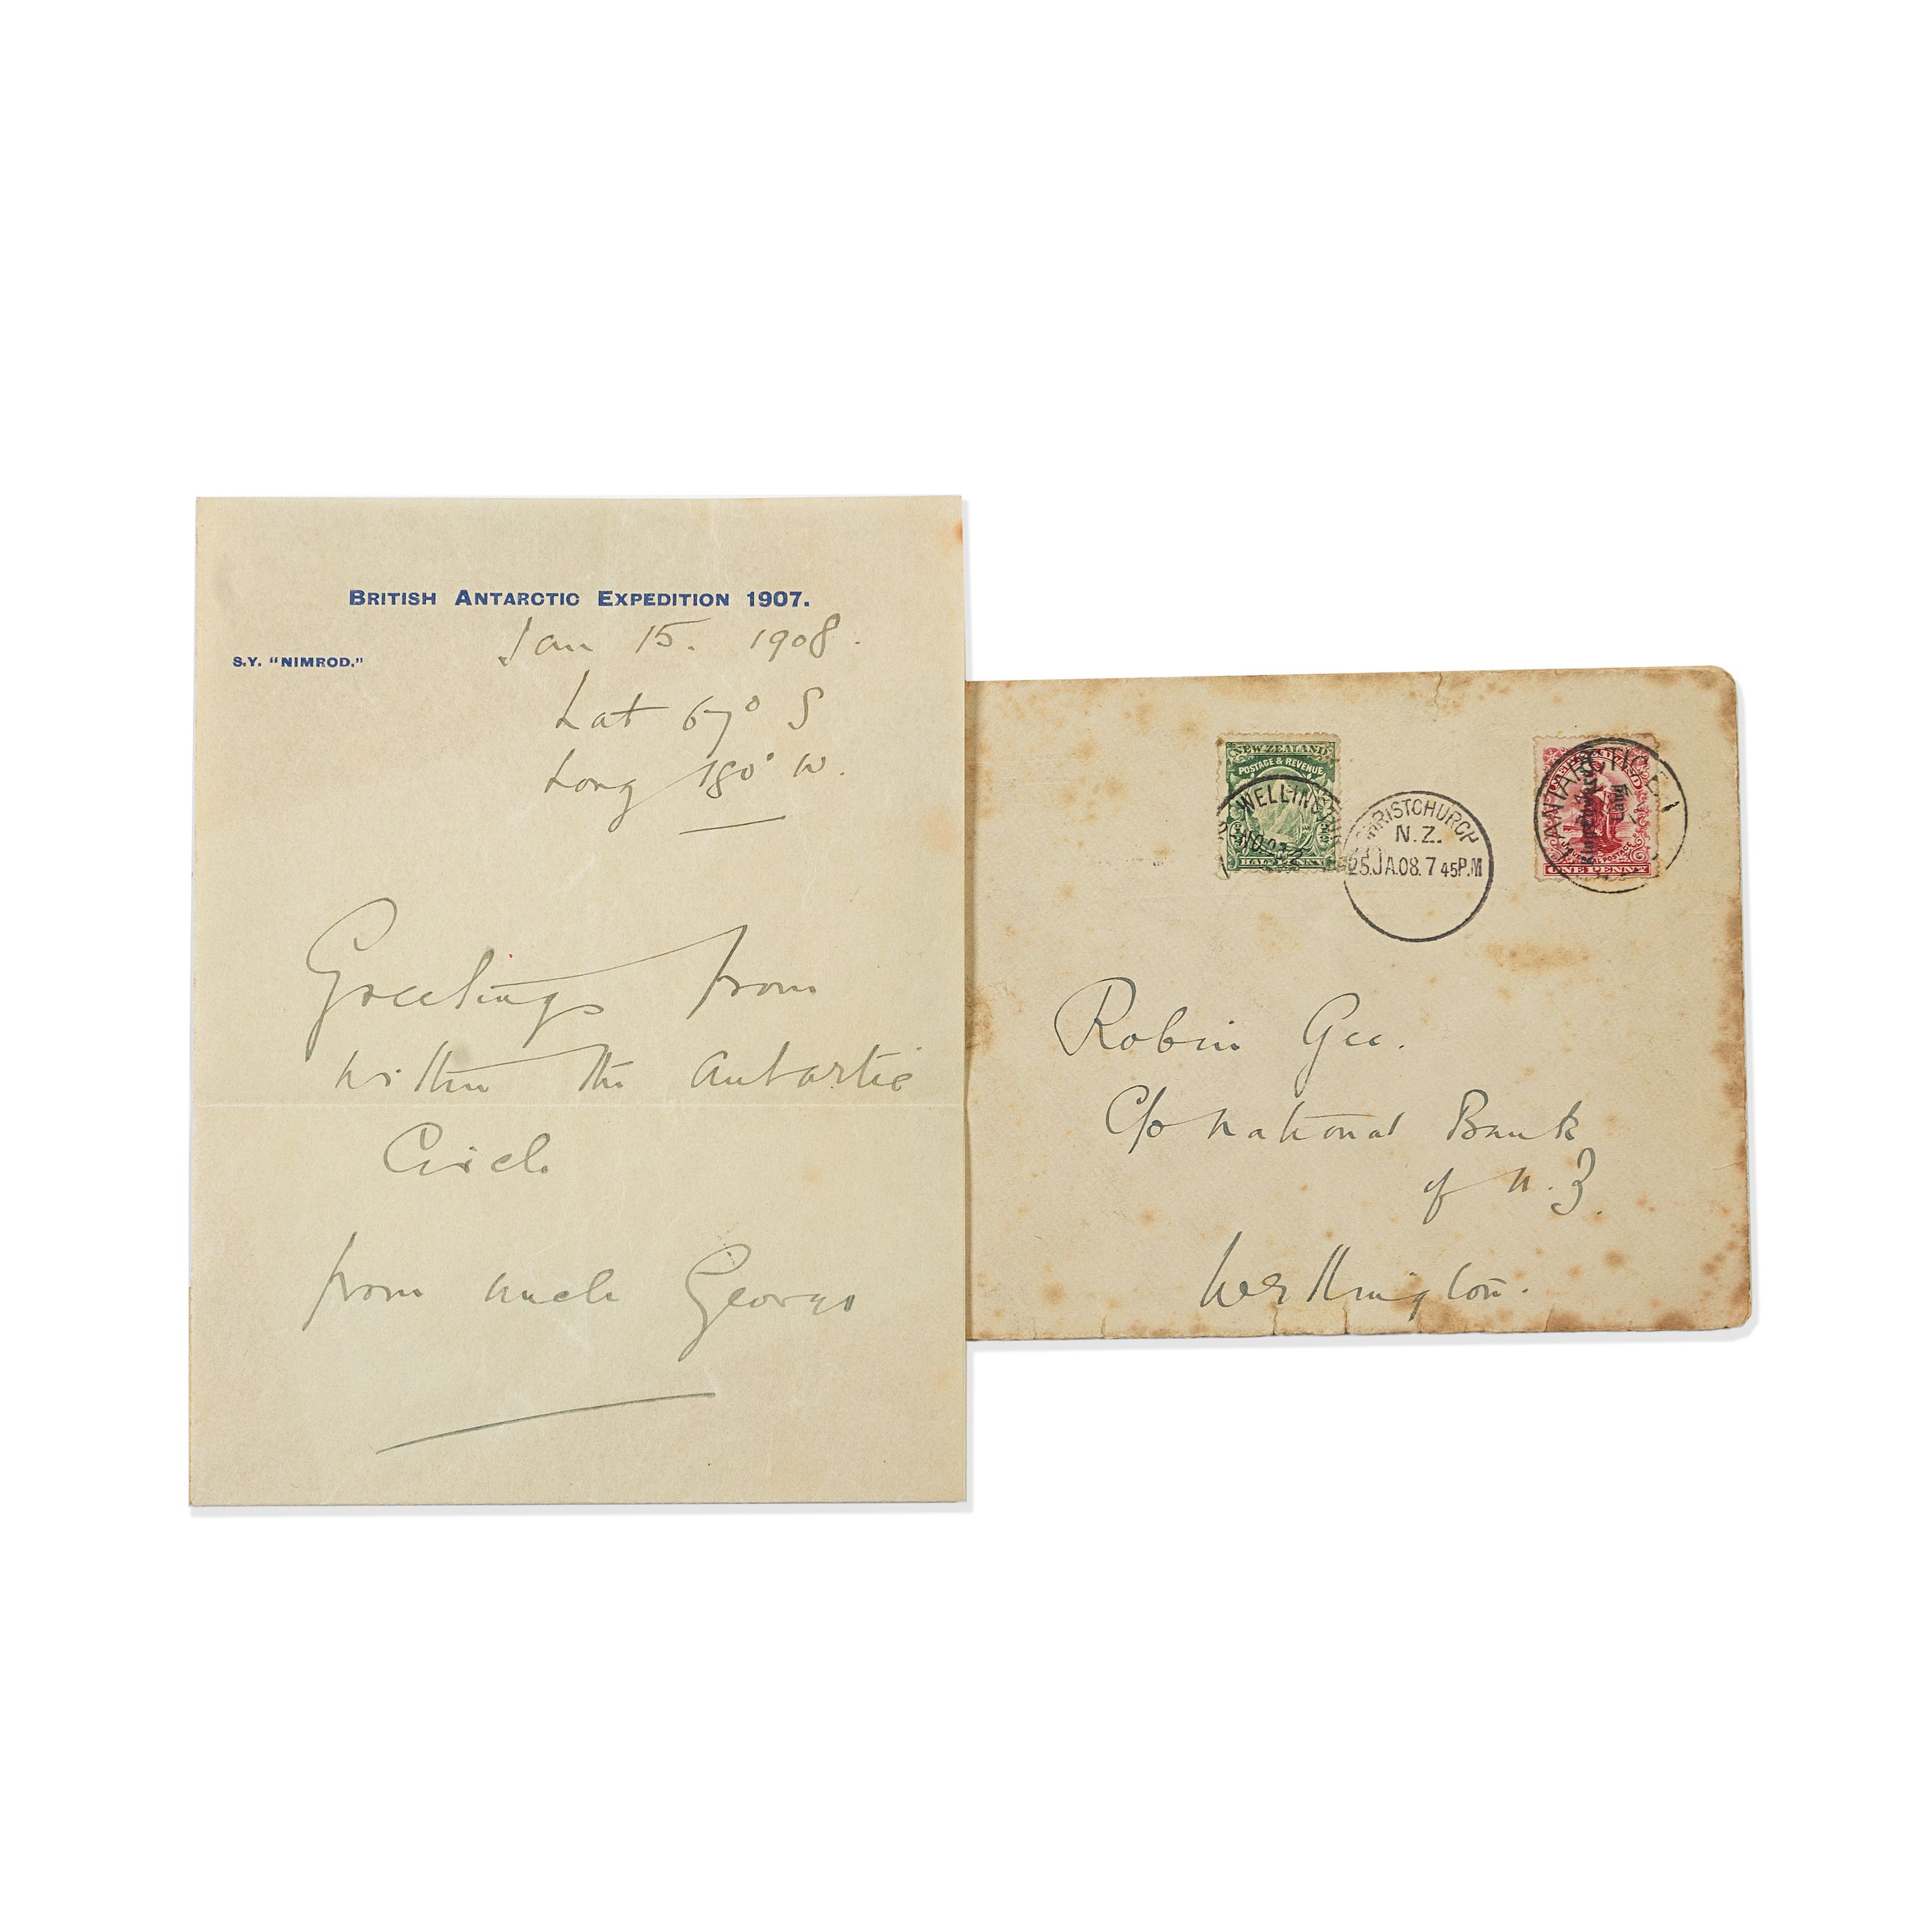 BRITISH ANTARCTIC EXPEDITION 1907.
Jan 15. 1908.
S.Y. "NIMROD."
Lat 67° S
Long 180° W.
Greetings from
within the Antartic
Circle
from uncle George
NEW ZEALAND
POSTAGE & REVENUE
HALF PENNY
WELLINGTON
CHRISTCHURCH
N.Z.
25.JA.08.7 45P.M
ANTARCTIC
King Edward VII
Land
UNIVERSAL POSTAGE
ONE PENNY
Robin Gee.
C/o National Bank
of N.Z.
Wellington.